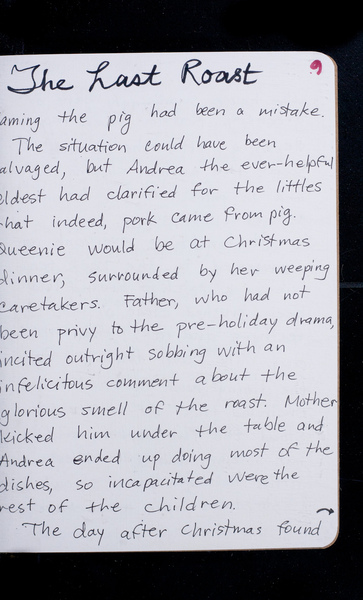 The Last Roast 9
aming the pig had been a mistake.
The situation could have been
alvaged, but Andrea the ever-helpful
eldest had clarified for the littles
that indeed, pork came from pig.
Queenie would be at Christmas
dinner, surrounded by her weeping
caretakers. Father, who had not
been privy to the pre-holiday drama,
incited outright sobbing with an
infelicitous comment about the
glorious smell of the roast. Mother
kicked him under the table and
Andrea ended up doing most of the
dishes, so incapacitated were the
rest of the children.
The day after Christmas found →